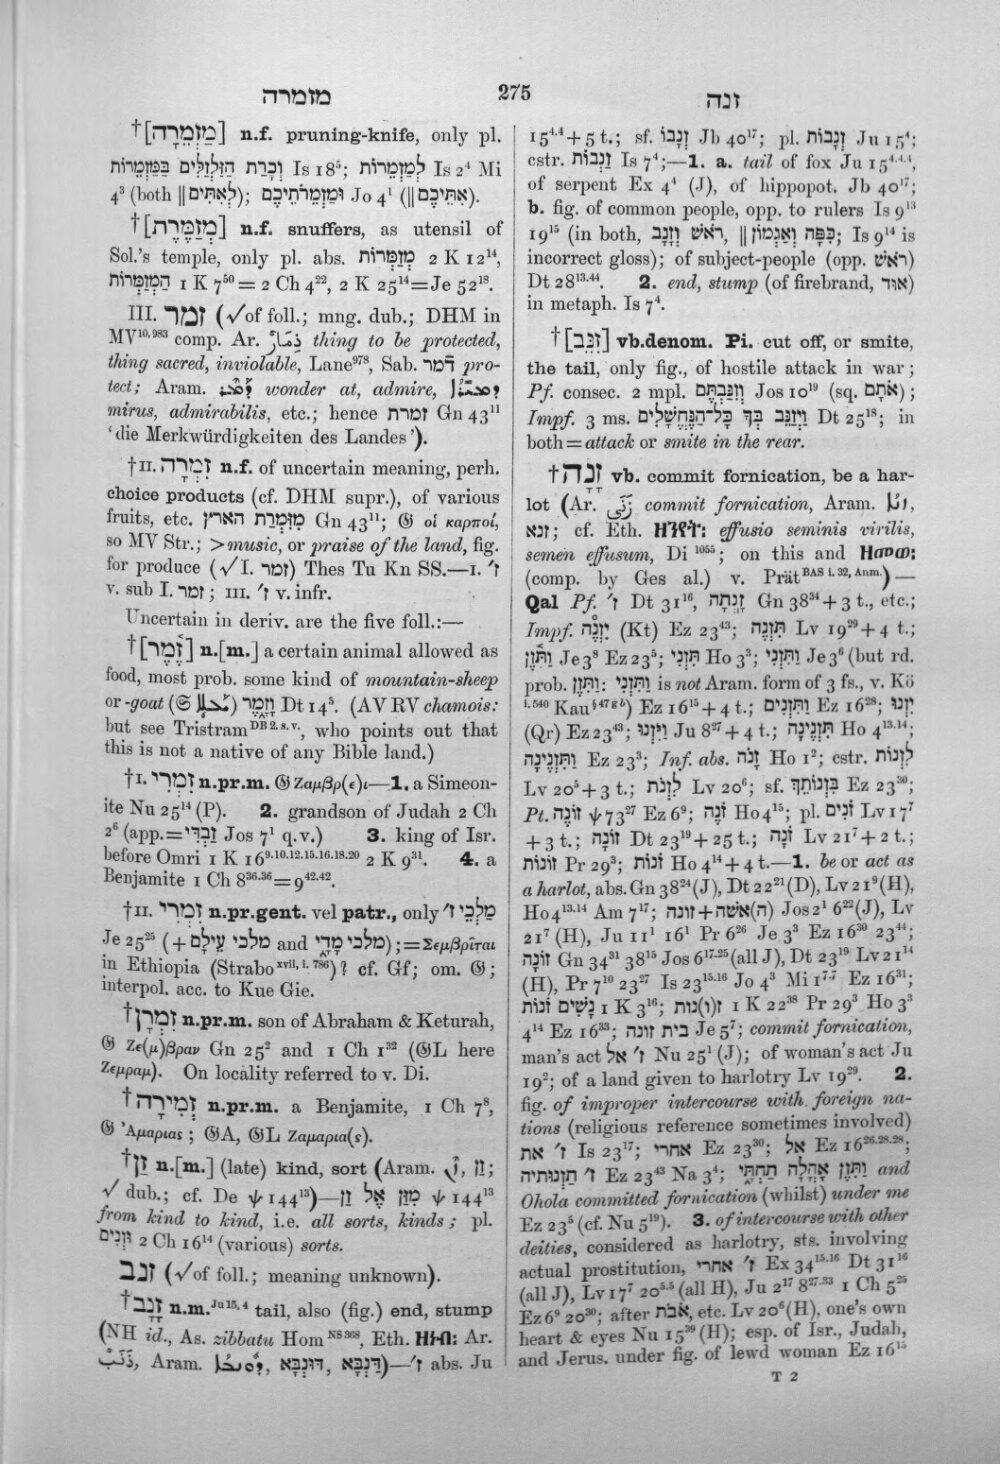 מזמרה
275
זנה
†[מַזְמֵרָה] n.f. pruning-knife, only pl.
וְכָרַת הַזַּלְזַלִּים בַּמַּזְמֵרוֹת Is 18⁵; לְמַזְמֵרוֹת Is 2⁴ Mi
4³ (both ‖ לְאִתִּים); וּמַזְמְרֹתֵיכֶם Jo 4¹ (‖ אִתֵּיכֶם).
†[מְזַמֶּרֶת] n.f. snuffers, as utensil of
Sol.'s temple, only pl. abs. מְזַמְּרוֹת 2 K 12¹⁴,
הַמְזַמְּרוֹת 1 K 7⁵⁰ = 2 Ch 4²², 2 K 25¹⁴ = Je 52¹⁸.
III. זמר (√of foll.; mng. dub.; DHM in
MV¹⁰·⁹⁸³ comp. Ar. ذِمَارٌ thing to be protected,
thing sacred, inviolable, Lane⁹⁷⁸, Sab. דמר pro-
tect; Aram. wonder at, admire,
mirus, admirabilis, etc.; hence זמרת Gn 43¹¹
'die Merkwürdigkeiten des Landes').
†II. זִמְרָה n.f. of uncertain meaning, perh.
choice products (cf. DHM supr.), of various
fruits, etc. מִזִּמְרַת הארץ Gn 43¹¹; 𝔊 οἱ καρποί,
so MV Str.; >music, or praise of the land, fig.
for produce (√I. זמר) Thes Tu Kn SS.—I. ז׳
v. sub I. זמר; III. ז׳ v. infr.
Uncertain in deriv. are the five foll.:—
†[זֶמֶר] n.[m.] a certain animal allowed as
food, most prob. some kind of mountain-sheep
or -goat (𝔖) וָזָמֶר Dt 14⁵. (AV RV chamois:
but see Tristram ᴰᴮ ²· ˢ·ᵛ·, who points out that
this is not a native of any Bible land.)
†I. זִמְרִי n.pr.m. 𝔊 Ζαμβρ(ε)ι—1. a Simeon-
ite Nu 25¹⁴ (P). 2. grandson of Judah 2 Ch
2⁶ (app.= זַבְדִּי Jos 7¹ q.v.) 3. king of Isr.
before Omri 1 K 16⁹·¹⁰·¹²·¹⁵·¹⁶·¹⁸·²⁰ 2 K 9³¹. 4. a
Benjamite 1 Ch 8³⁶·³⁶ = 9⁴²·⁴².
†II. זִמְרִי n.pr.gent. vel patr., only מַלְכֵי ז׳
Je 25²⁵ (+ מלכי עֵילָם and מלכי מָדָי); = Σεμβρῖται
in Ethiopia (Strabo ˣᵛⁱⁱ, ⁱ· ⁷⁸⁶)? cf. Gf; om. 𝔊;
interpol. acc. to Kue Gie.
†זִמְרָן n.pr.m. son of Abraham & Keturah,
𝔊 Ζε(μ)βραν Gn 25² and 1 Ch 1³² (𝔊L here
Ζεμραμ). On locality referred to v. Di.
†זְמִירָה n.pr.m. a Benjamite, 1 Ch 7⁸,
𝔊 Ἀμαριας; 𝔊A, 𝔊L Ζαμαρια(ς).
†זַן n.[m.] (late) kind, sort (Aram. זַן;
√ dub.; cf. De ψ 144¹³)—מִזַּן אֶל זַן ψ 144¹³
from kind to kind, i.e. all sorts, kinds; pl.
וּזְנִים 2 Ch 16¹⁴ (various) sorts.
זנב (√of foll.; meaning unknown).
†זָנָב n.m. ᴶᵘ ¹⁵, ⁴ tail, also (fig.) end, stump
(NH id., As. zibbatu Hom ᴺˢ ³⁰⁸, Eth. ዘነብ: Ar.
ذَنَبٌ, Aram. דַּנְבָא, דּוּנְבָא, דַּנְבָּא)—ז׳ abs. Ju
15⁴·⁴ + 5 t.; sf. זְנָבוֹ Jb 40¹⁷; pl. זְנָבוֹת Ju 15⁴;
cstr. זַנְבוֹת Is 7⁴;—1. a. tail of fox Ju 15⁴·⁴·⁴,
of serpent Ex 4⁴ (J), of hippopot. Jb 40¹⁷;
b. fig. of common people, opp. to rulers Is 9¹³
19¹⁵ (in both, רֹאשׁ וְזָנָב, ‖ כִּפָּה וְאַגְמוֹן; Is 9¹⁴ is
incorrect gloss); of subject-people (opp. רֹאשׁ)
Dt 28¹³·⁴⁴. 2. end, stump (of firebrand, אוּד)
in metaph. Is 7⁴.
†[זִנֵּב] vb.denom. Pi. cut off, or smite,
the tail, only fig., of hostile attack in war;
Pf. consec. 2 mpl. וְזִנַּבְתֶּם Jos 10¹⁹ (sq. אֹתָם);
Impf. 3 ms. וַיְזַנֵּב בְּךָ כָּל־הַנֶּחֱשָׁלִים Dt 25¹⁸; in
both = attack or smite in the rear.
†זָנָה vb. commit fornication, be a har-
lot (Ar. زَنَى commit fornication, Aram. ,
זנא; cf. Eth. effusio seminis virilis,
semen effusum, Di ¹⁰⁵⁵; on this and ዘመወ:
(comp. by Ges al.) v. Prät ᴮᴬˢ ⁱ· ³², ᴬⁿᵐ·)—
Qal Pf. ז׳ Dt 31¹⁶, זָנְתָה Gn 38²⁴ + 3 t., etc.;
Impf. יִזְנֶה (Kt) Ez 23⁴³; תִּזְנֶה Lv 19²⁹ + 4 t.;
וַתִּזֶן Je 3⁸ Ez 23⁵; תִּזְנִי Ho 3³; וַתִּזְנִי Je 3⁶ (but rd.
prob. וַתִּזֶן: וַתִּזְנִי is not Aram. form of 3 fs., v. Kö
ⁱ· ⁵⁴⁰ Kau § ⁴⁷ ᵍ ᵇ) Ez 16¹⁵ + 4 t.; וַתִּזְנִים Ez 16²⁸; יִזְנוּ
(Qr) Ez 23⁴³; וַיִּזְנוּ Ju 8²⁷ + 4 t.; תִּזְנֶינָה Ho 4¹³·¹⁴;
וַתִּזְנֶינָה Ez 23³; Inf. abs. זָנֹה Ho 1²; cstr. לִזְנוֹת
Lv 20⁵ + 3 t.; לִזְנֹת Lv 20⁶; sf. בִּזְנוֹתֵךְ Ez 23³⁰;
Pt. זוֹנֶה ψ 73²⁷ Ez 6⁹; זֹנֶה Ho 4¹⁵; pl. זֹנִים Lv 17⁷
+ 3 t.; זוֹנָה Dt 23¹⁹ + 25 t.; זֹנָה Lv 21⁷ + 2 t.;
זוֹנוֹת Pr 29³; זֹנוֹת Ho 4¹⁴ + 4 t.—1. be or act as
a harlot, abs. Gn 38²⁴ (J), Dt 22²¹ (D), Lv 21⁹ (H),
Ho 4¹³·¹⁴ Am 7¹⁷; אשה + זונה(ה) Jos 2¹ 6²² (J), Lv
21⁷ (H), Ju 11¹ 16¹ Pr 6²⁶ Je 3³ Ez 16³⁰ 23⁴⁴;
זוֹנָה Gn 34³¹ 38¹⁵ Jos 6¹⁷·²⁵ (all J), Dt 23¹⁹ Lv 21¹⁴
(H), Pr 7¹⁰ 23²⁷ Is 23¹⁵·¹⁶ Jo 4³ Mi 1⁷·⁷ Ez 16³¹;
נָשִׁים זֹנוֹת 1 K 3¹⁶; ז(ו)נות 1 K 22³⁸ Pr 29³ Ho 3³
4¹⁴ Ez 16³³; בית זונה Je 5⁷; commit fornication,
man's act ז׳ אל Nu 25¹ (J); of woman's act Ju
19²; of a land given to harlotry Lv 19²⁹. 2.
fig. of improper intercourse with foreign na-
tions (religious reference sometimes involved)
ז׳ את Is 23¹⁷; אחרי Ez 23³⁰; אל Ez 16²⁶·²⁸·²⁸;
ז׳ תזנותיה Ez 23⁴³ Na 3⁴; וַתִּזֶן אָהֳלָה תַּחְתָּי and
Ohola committed fornication (whilst) under me
Ez 23⁵ (cf. Nu 5¹⁹). 3. of intercourse with other
deities, considered as harlotry, sts. involving
actual prostitution, ז׳ אחרי Ex 34¹⁵·¹⁶ Dt 31¹⁶
(all J), Lv 17⁷ 20⁵·⁵ (all H), Ju 2¹⁷ 8²⁷·³³ 1 Ch 5²⁵
Ez 6⁹ 20³⁰; after אֹבֹת, etc. Lv 20⁶ (H), one's own
heart & eyes Nu 15³⁹ (H); esp. of Isr., Judah,
and Jerus. under fig. of lewd woman Ez 16¹⁵
T 2